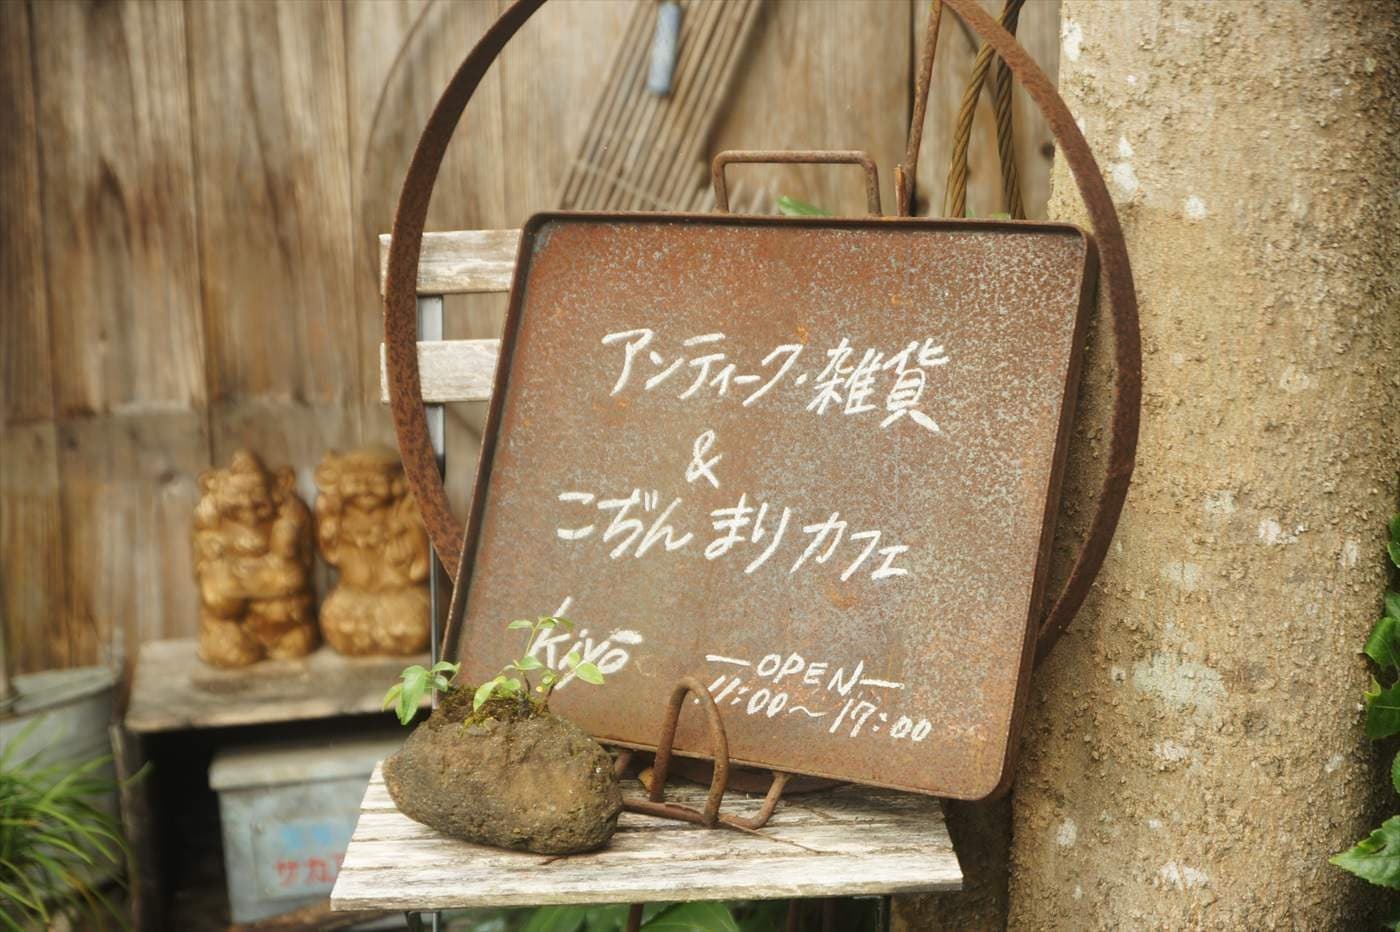 アンティーク・雑貨
&
こぢんまりカフェ
Kiyō
—OPEN—
11:00～17:00
サカ